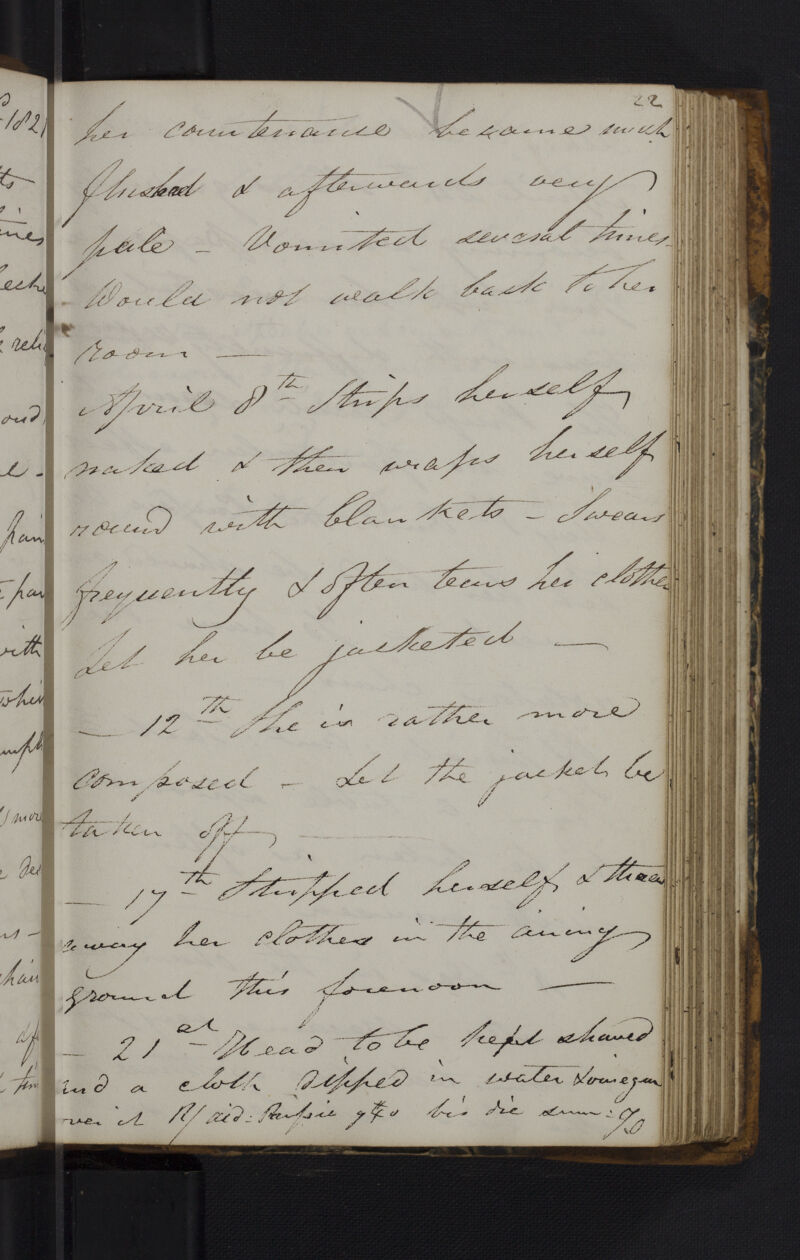 22
her countenance became much
flushed & afterwards very
pale - Vomited several times
Would not walk back to her
room —
April 8th Strips herself
naked & then wraps herself
round with blankets - Swears
frequently & often tears her clothes
Let her be jacketed —
— 12th She is rather more
composed - Let the jacket be
taken off —
— 17th Stripped herself & threw
away her clothes in the airing
ground this forenoon —
— 21st Head to be kept shaved
and a cloth dipped in water & vinegar
over it R/ bis die sum:
1821